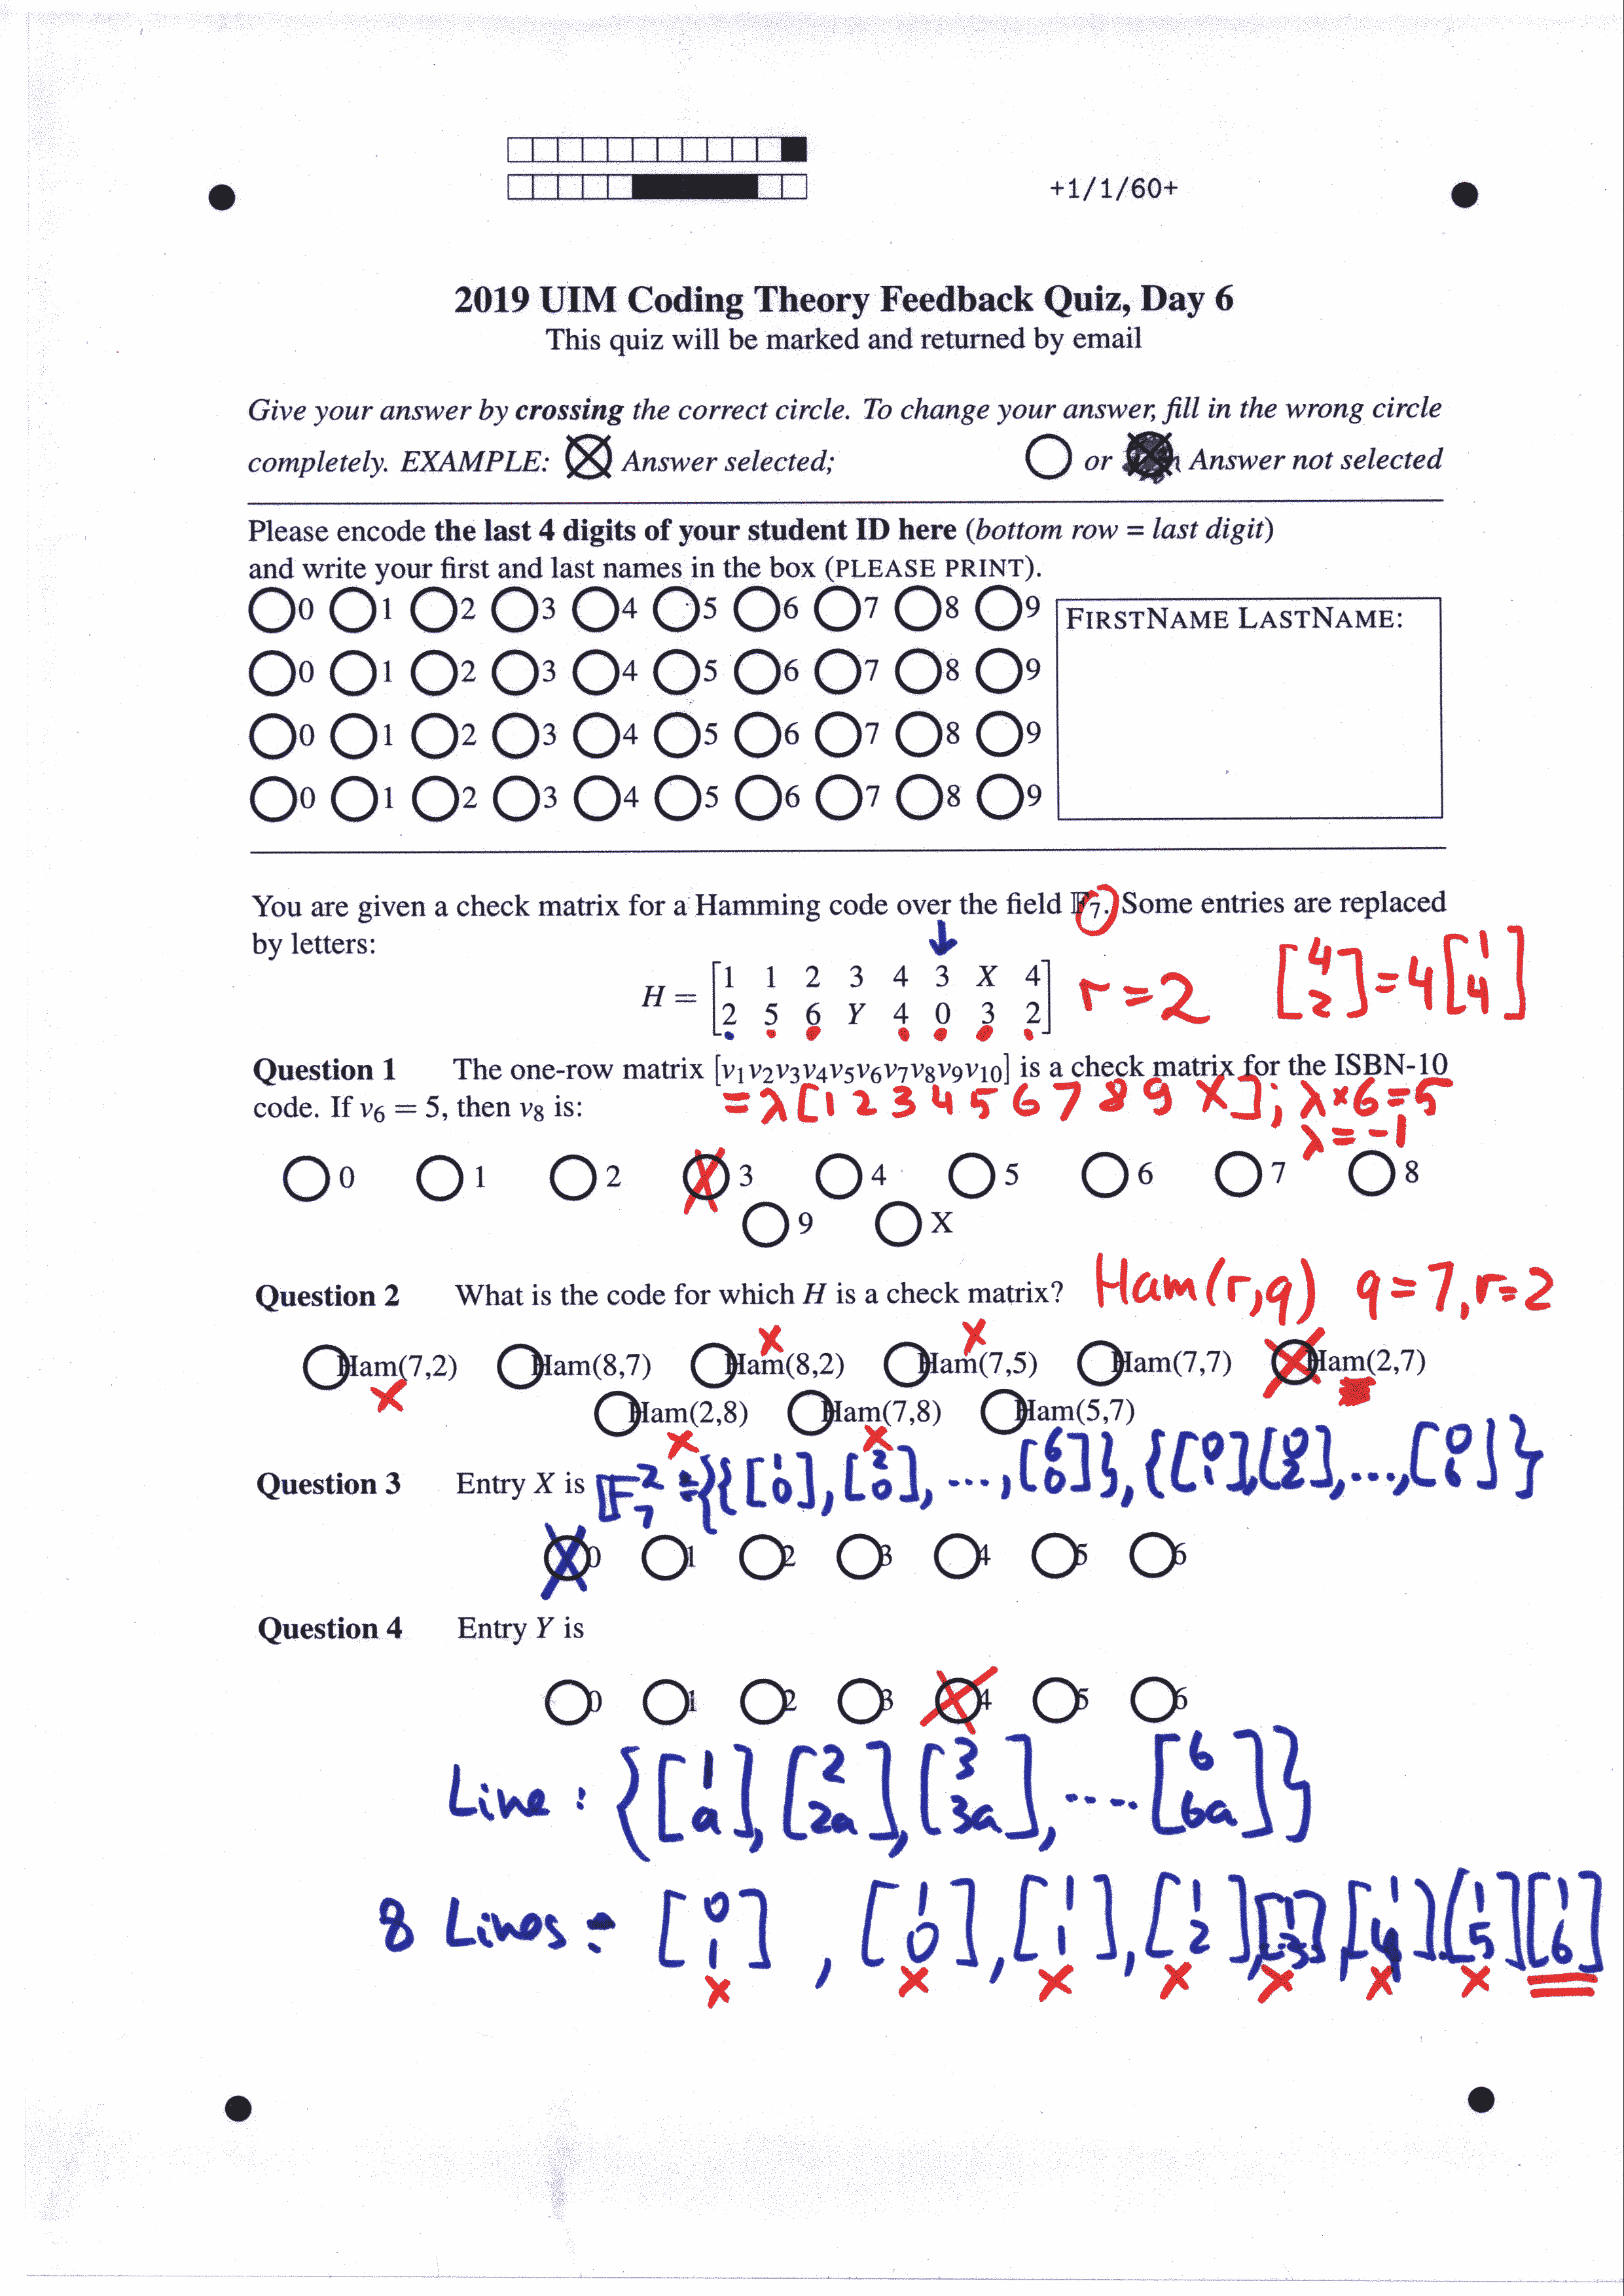 +1/1/60+
2019 UIM Coding Theory Feedback Quiz, Day 6
This quiz will be marked and returned by email
Give your answer by crossing the correct circle. To change your answer, fill in the wrong circle
completely. EXAMPLE: Answer selected; or Answer not selected
Please encode the last 4 digits of your student ID here (bottom row = last digit)
and write your first and last names in the box (PLEASE PRINT).
0 1 2 3 4 5 6 7 8 9
FIRSTNAME LASTNAME:
0 1 2 3 4 5 6 7 8 9
0 1 2 3 4 5 6 7 8 9
0 1 2 3 4 5 6 7 8 9
You are given a check matrix for a Hamming code over the field 𝔽7. Some entries are replaced
by letters:
H = [1 1 2 3 4 3 X 4
2 5 6 Y 4 0 3 2]
r=2
[4 2] = 4[1 4]
Question 1 The one-row matrix [v1v2v3v4v5v6v7v8v9v10] is a check matrix for the ISBN-10
code. If v6 = 5, then v8 is:
= λ[1 2 3 4 5 6 7 8 9 X]; λ×6=5
λ=-1
0 1 2 3 4 5 6 7 8
9 X
Question 2 What is the code for which H is a check matrix?
Ham(r,q) q=7, r=2
Ham(7,2) Ham(8,7) Ham(8,2) Ham(7,5) Ham(7,7) Ham(2,7)
Ham(2,8) Ham(7,8) Ham(5,7)
Question 3 Entry X is
𝔽7^2 = {{[1 0], [2 0], ..., [6 0]}, {[0 1], [0 2], ..., [0 6]}
0 1 2 3 4 5 6
Question 4 Entry Y is
0 1 2 3 4 5 6
Line: {[1 a], [2 2a], [3 3a], .... [6 6a]}
8 Lines: [0 1], [1 0], [1 1], [1 2], [1 3], [1 4], [1 5] [1 6]